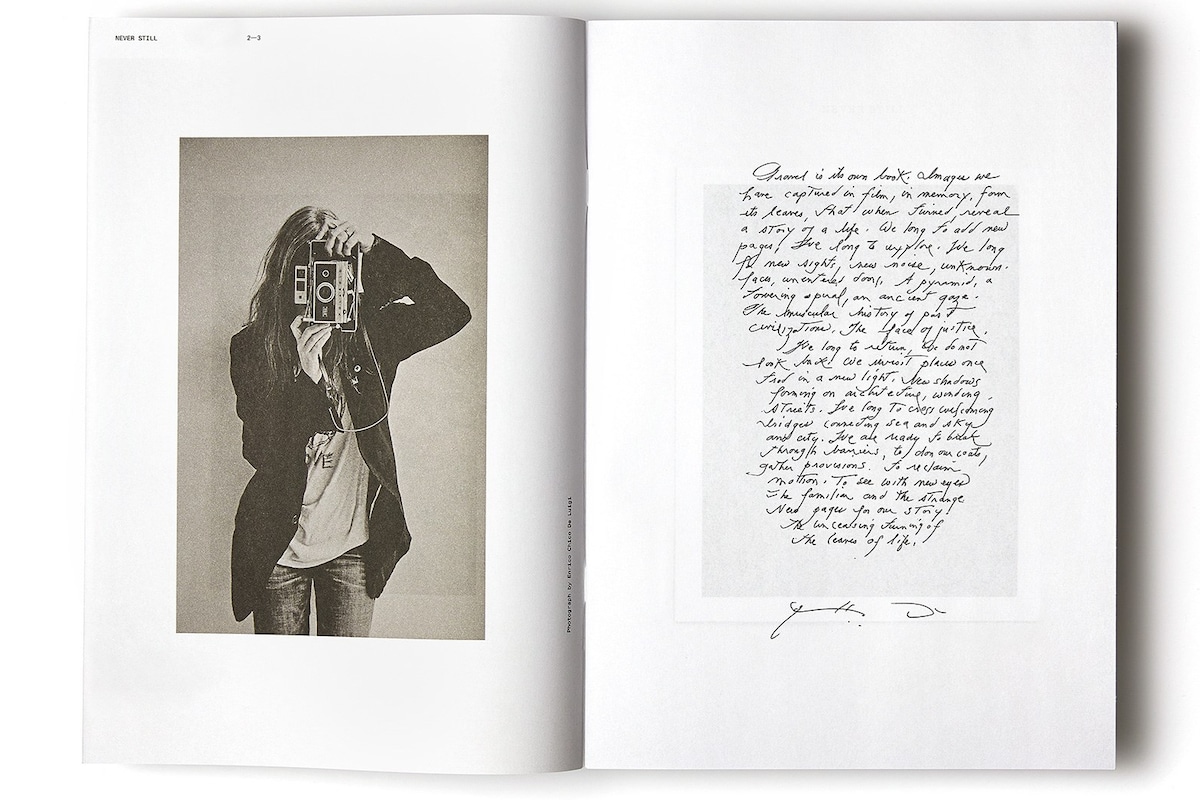 NEVER STILL
2—3
Photograph by Enrico Chico De Luigi
Travel is its own book. Images we
have captured in film, in memory, form
its leaves, that when turned, reveal
a story of a life. We long to add new
pages, We long to explore. We long
for new sights, new noise, unknown
faces, unentered doors. A pyramid, a
towering spiral, an ancient gaze.
The muscular history of past
civilizations. The face of justice.
We long to return, we do not
look back. We revisit places once
trod in a new light. New shadows
forming on architecture, winding
streets. We long to cross welcoming
bridges connecting sea and sky
and city. We are ready to break
through barriers, to don our coats,
gather provisions. To reclaim
motion. To see with new eyes
The familiar and the strange
New pages for our story!
The unceasing turning of
the leaves of life.